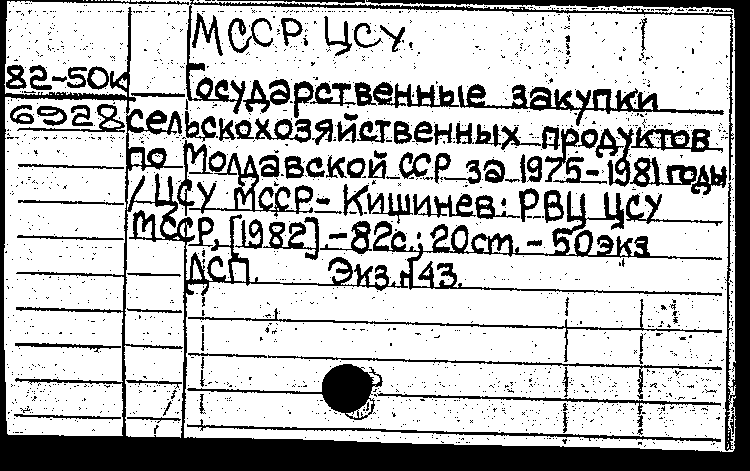 МССР. ЦСУ.
82-50к
6928
Государственные закупки
сельскохозяйственных продуктов
по Молдавской ССР за 1975-1981 годы
/ ЦСУ МССР.- Кишинев: РВЦ ЦСУ
МССР, [1982].-82с.; 20см.-50экз
ДСП. Экз.№43.